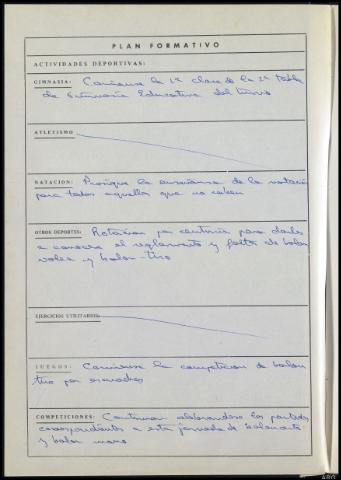 PLAN FORMATIVO
ACTIVIDADES DEPORTIVAS:
GIMNASIA: Comienza la 1ª clase de la 2ª tabla
de Gimnasia Educativa del turno
ATLETISMO
NATACION: Prosigue la enseñanza de la natación
para todos aquellos que no saben
OTROS DEPORTES: Rotación por centuria para darles
a conocer el reglamento y faltas de balon
volea y balon-tiro
EJERCICIOS UTILITARIOS:
JUEGOS: Comienza la competicion de balon
tiro por escuadras
COMPETICIONES: Continuan celebrandose los partidos
correspondientes a esta jornada de baloncesto
y balon mano